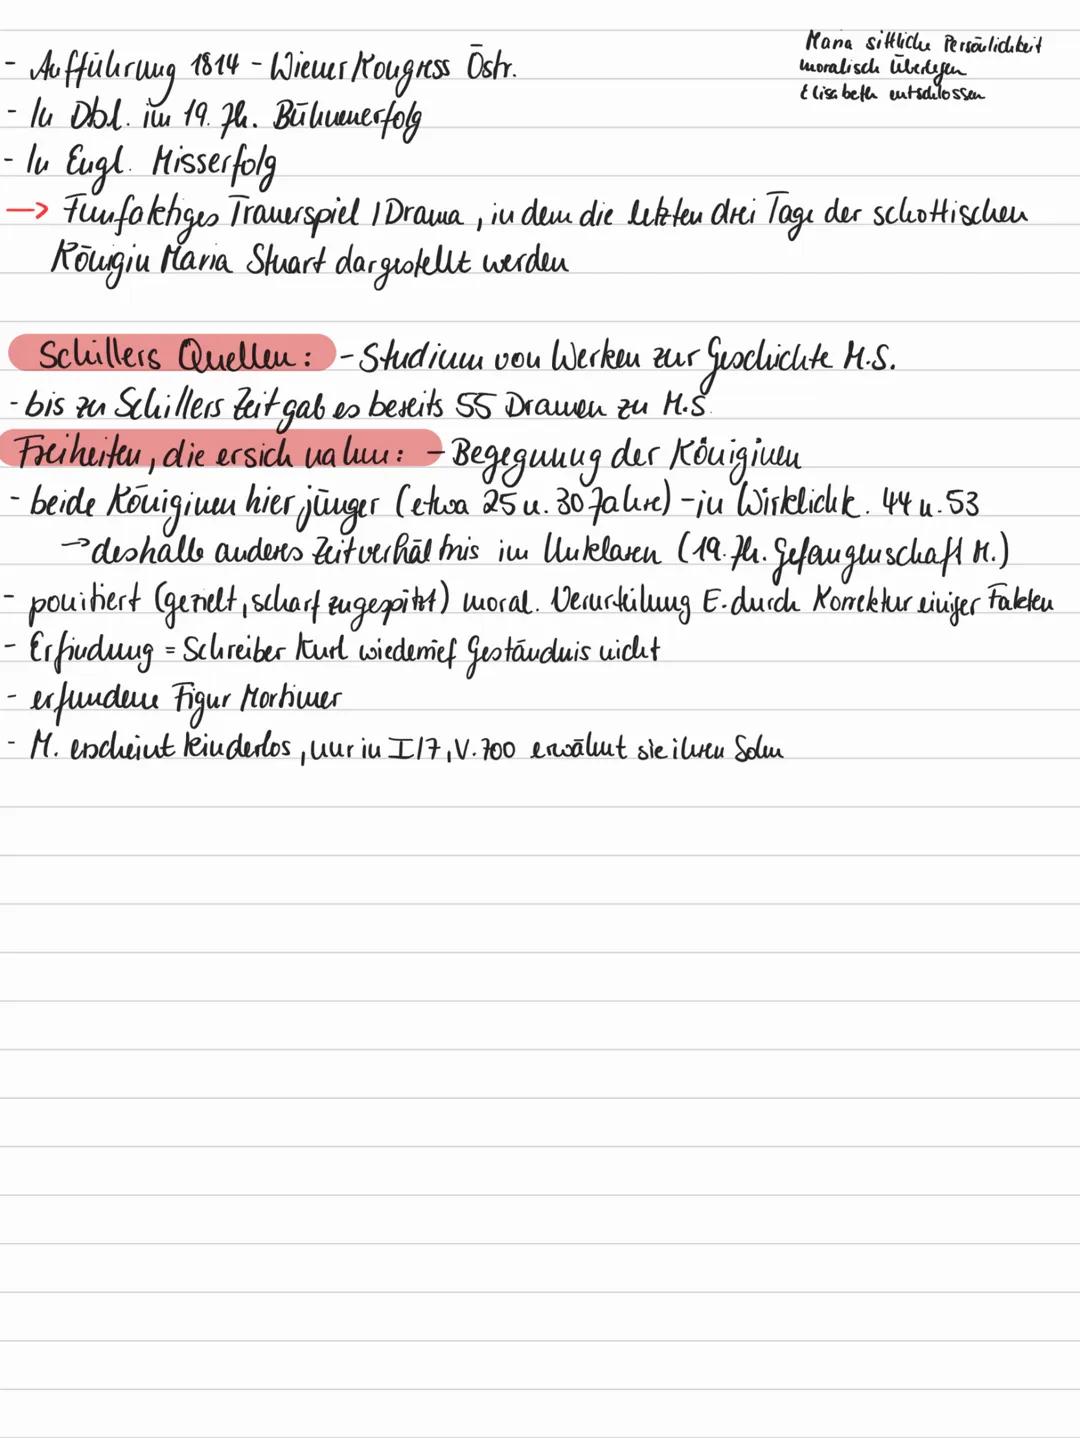 Maria sittliche Persönlichkeit
moralisch Überlegen
Elisabeth entschlossen
- Aufführung 1814 - Wiener Kongress Östr.
- In Dbl. im 19. Jh. Bühnenerfolg
- In Engl. Misserfolg
→ Fünfaktiges Trauerspiel / Drama, in dem die letzten drei Tage der schottischen
Königin Maria Stuart dargestellt werden
Schillers Quellen: - Studium von Werken zur Geschichte M.S.
- bis zu Schillers Zeit gab es bereits 55 Dramen zu M.S.
Freiheiten, die er sich nahm: - Begegnung der Königinen
- beide Königinen hier jünger (etwa 25 u. 30 Jahre) - in Wirklichk. 44 u. 53
→ deshalb anderes Zeitverhältnis im Unklaren (19. Jh. Gefangenschaft M.)
- pointiert (gezielt, scharf zugespitzt) moral. Verurteilung E. durch Korrektur einiger Fakten
- Erfindung = Schreiber Kurl wiederrief Geständnis nicht
- erfundene Figur Mortimer
- M. erscheint kinderlos, nur in I/7, V. 700 erwähnt sie ihren Sohn